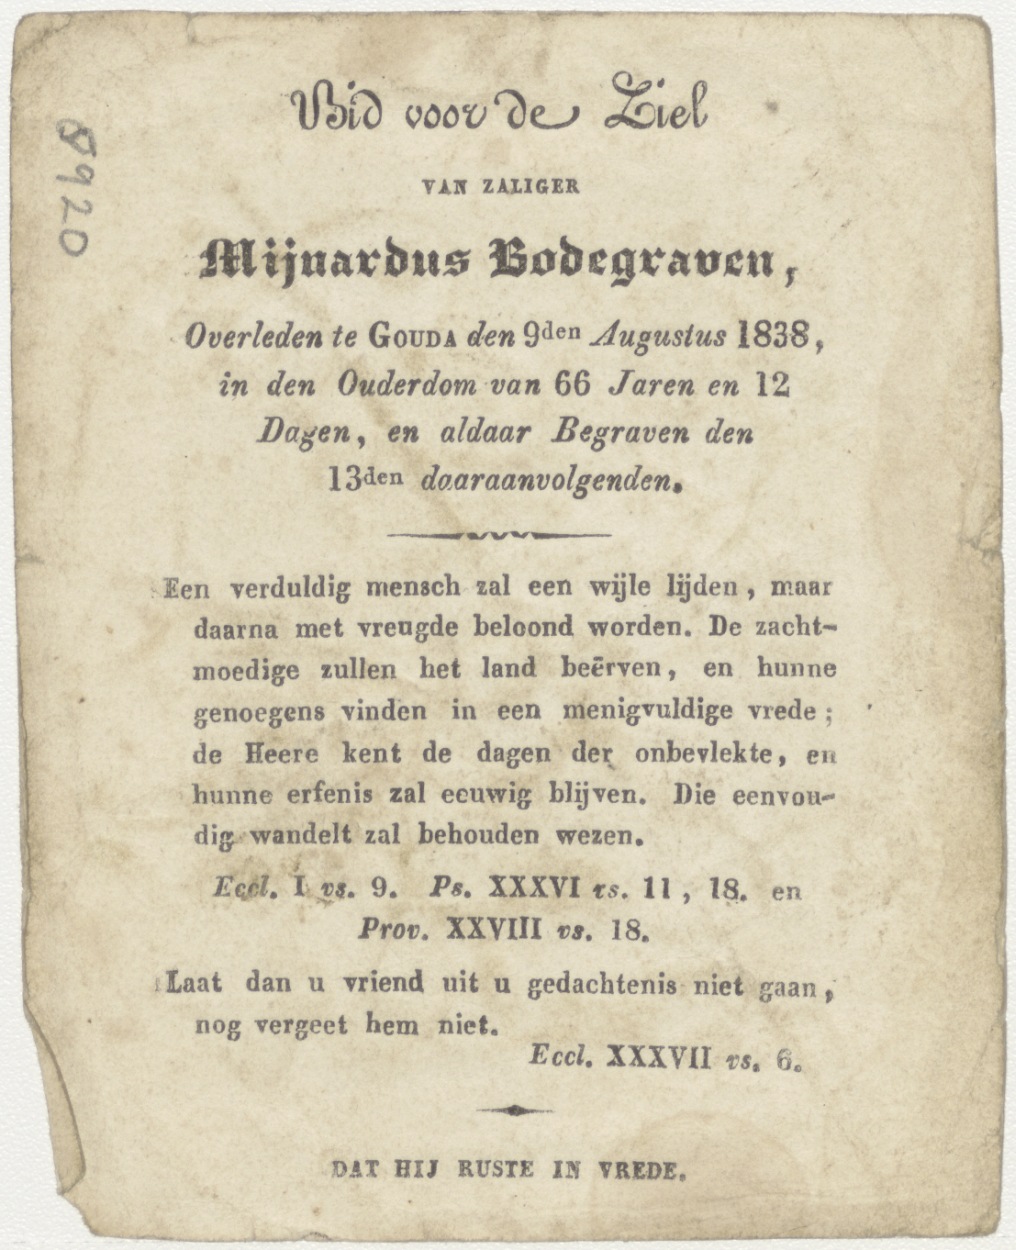 8920
Bid voor de Ziel
VAN ZALIGER
Mijnardus Bodegraven,
Overleden te GOUDA den 9den Augustus 1838,
in den Ouderdom van 66 Jaren en 12
Dagen, en aldaar Begraven den
13den daaraanvolgenden.
Een verduldig mensch zal een wijle lijden, maar
daarna met vreugde beloond worden. De zacht-
moedige zullen het land beërven, en hunne
genoegens vinden in een menigvuldige vrede;
de Heere kent de dagen der onbevlekte, en
hunne erfenis zal eeuwig blijven. Die eenvou-
dig wandelt zal behouden wezen.
Eccl. I vs. 9. Ps. XXXVI vs. 11, 18. en
Prov. XXVIII vs. 18.
Laat dan u vriend uit u gedachtenis niet gaan,
nog vergeet hem niet.
Eccl. XXXVII vs. 6.
DAT HIJ RUSTE IN VREDE.